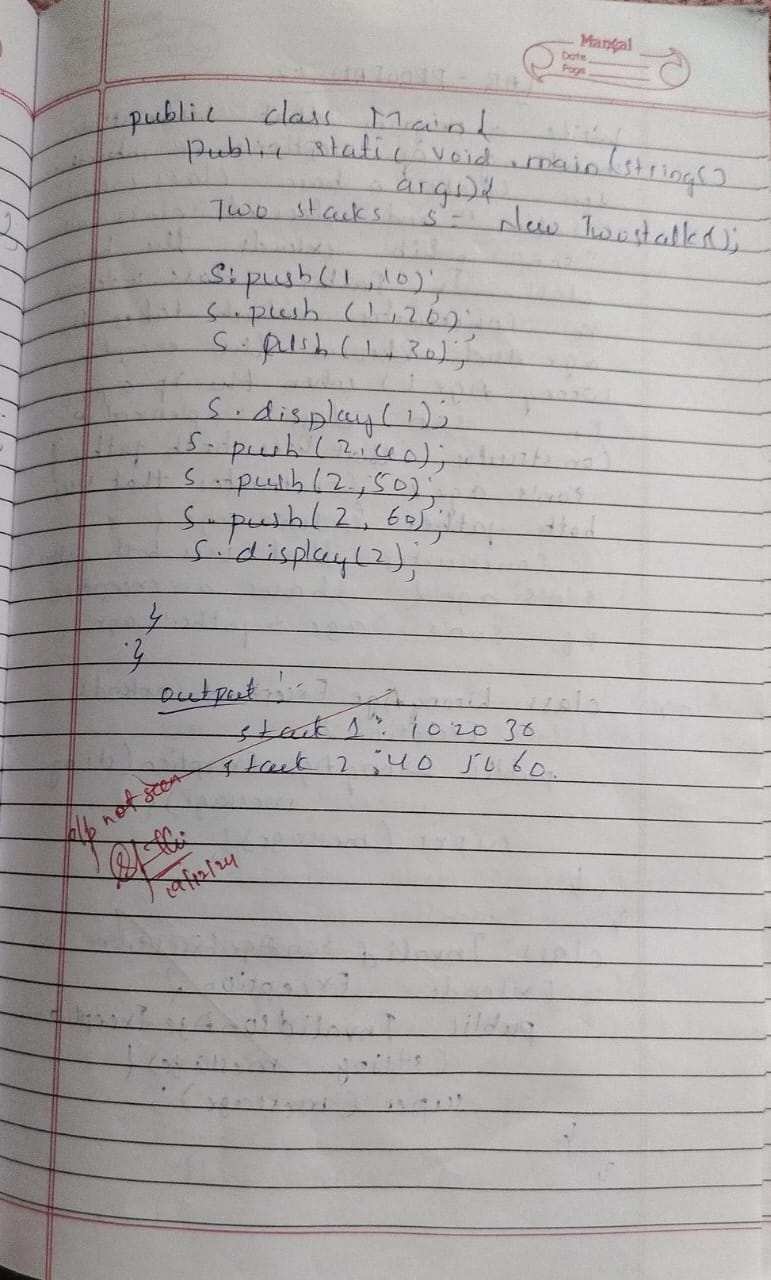 Mangal
Date
Page
public class Main{
public static void main(strings()
args){
Two stacks s = New Twostalks();
S. push(1,10);
s. push (1,20);
s. push (1,30);
s. display(1);
s. push (2,40);
s. push(2,50);
s. push(2, 60);
s. display(2);
}
}
output :-
stack 1: 10 20 30
stack 2 : 40 50 60.
o/p not seen
19/12/24